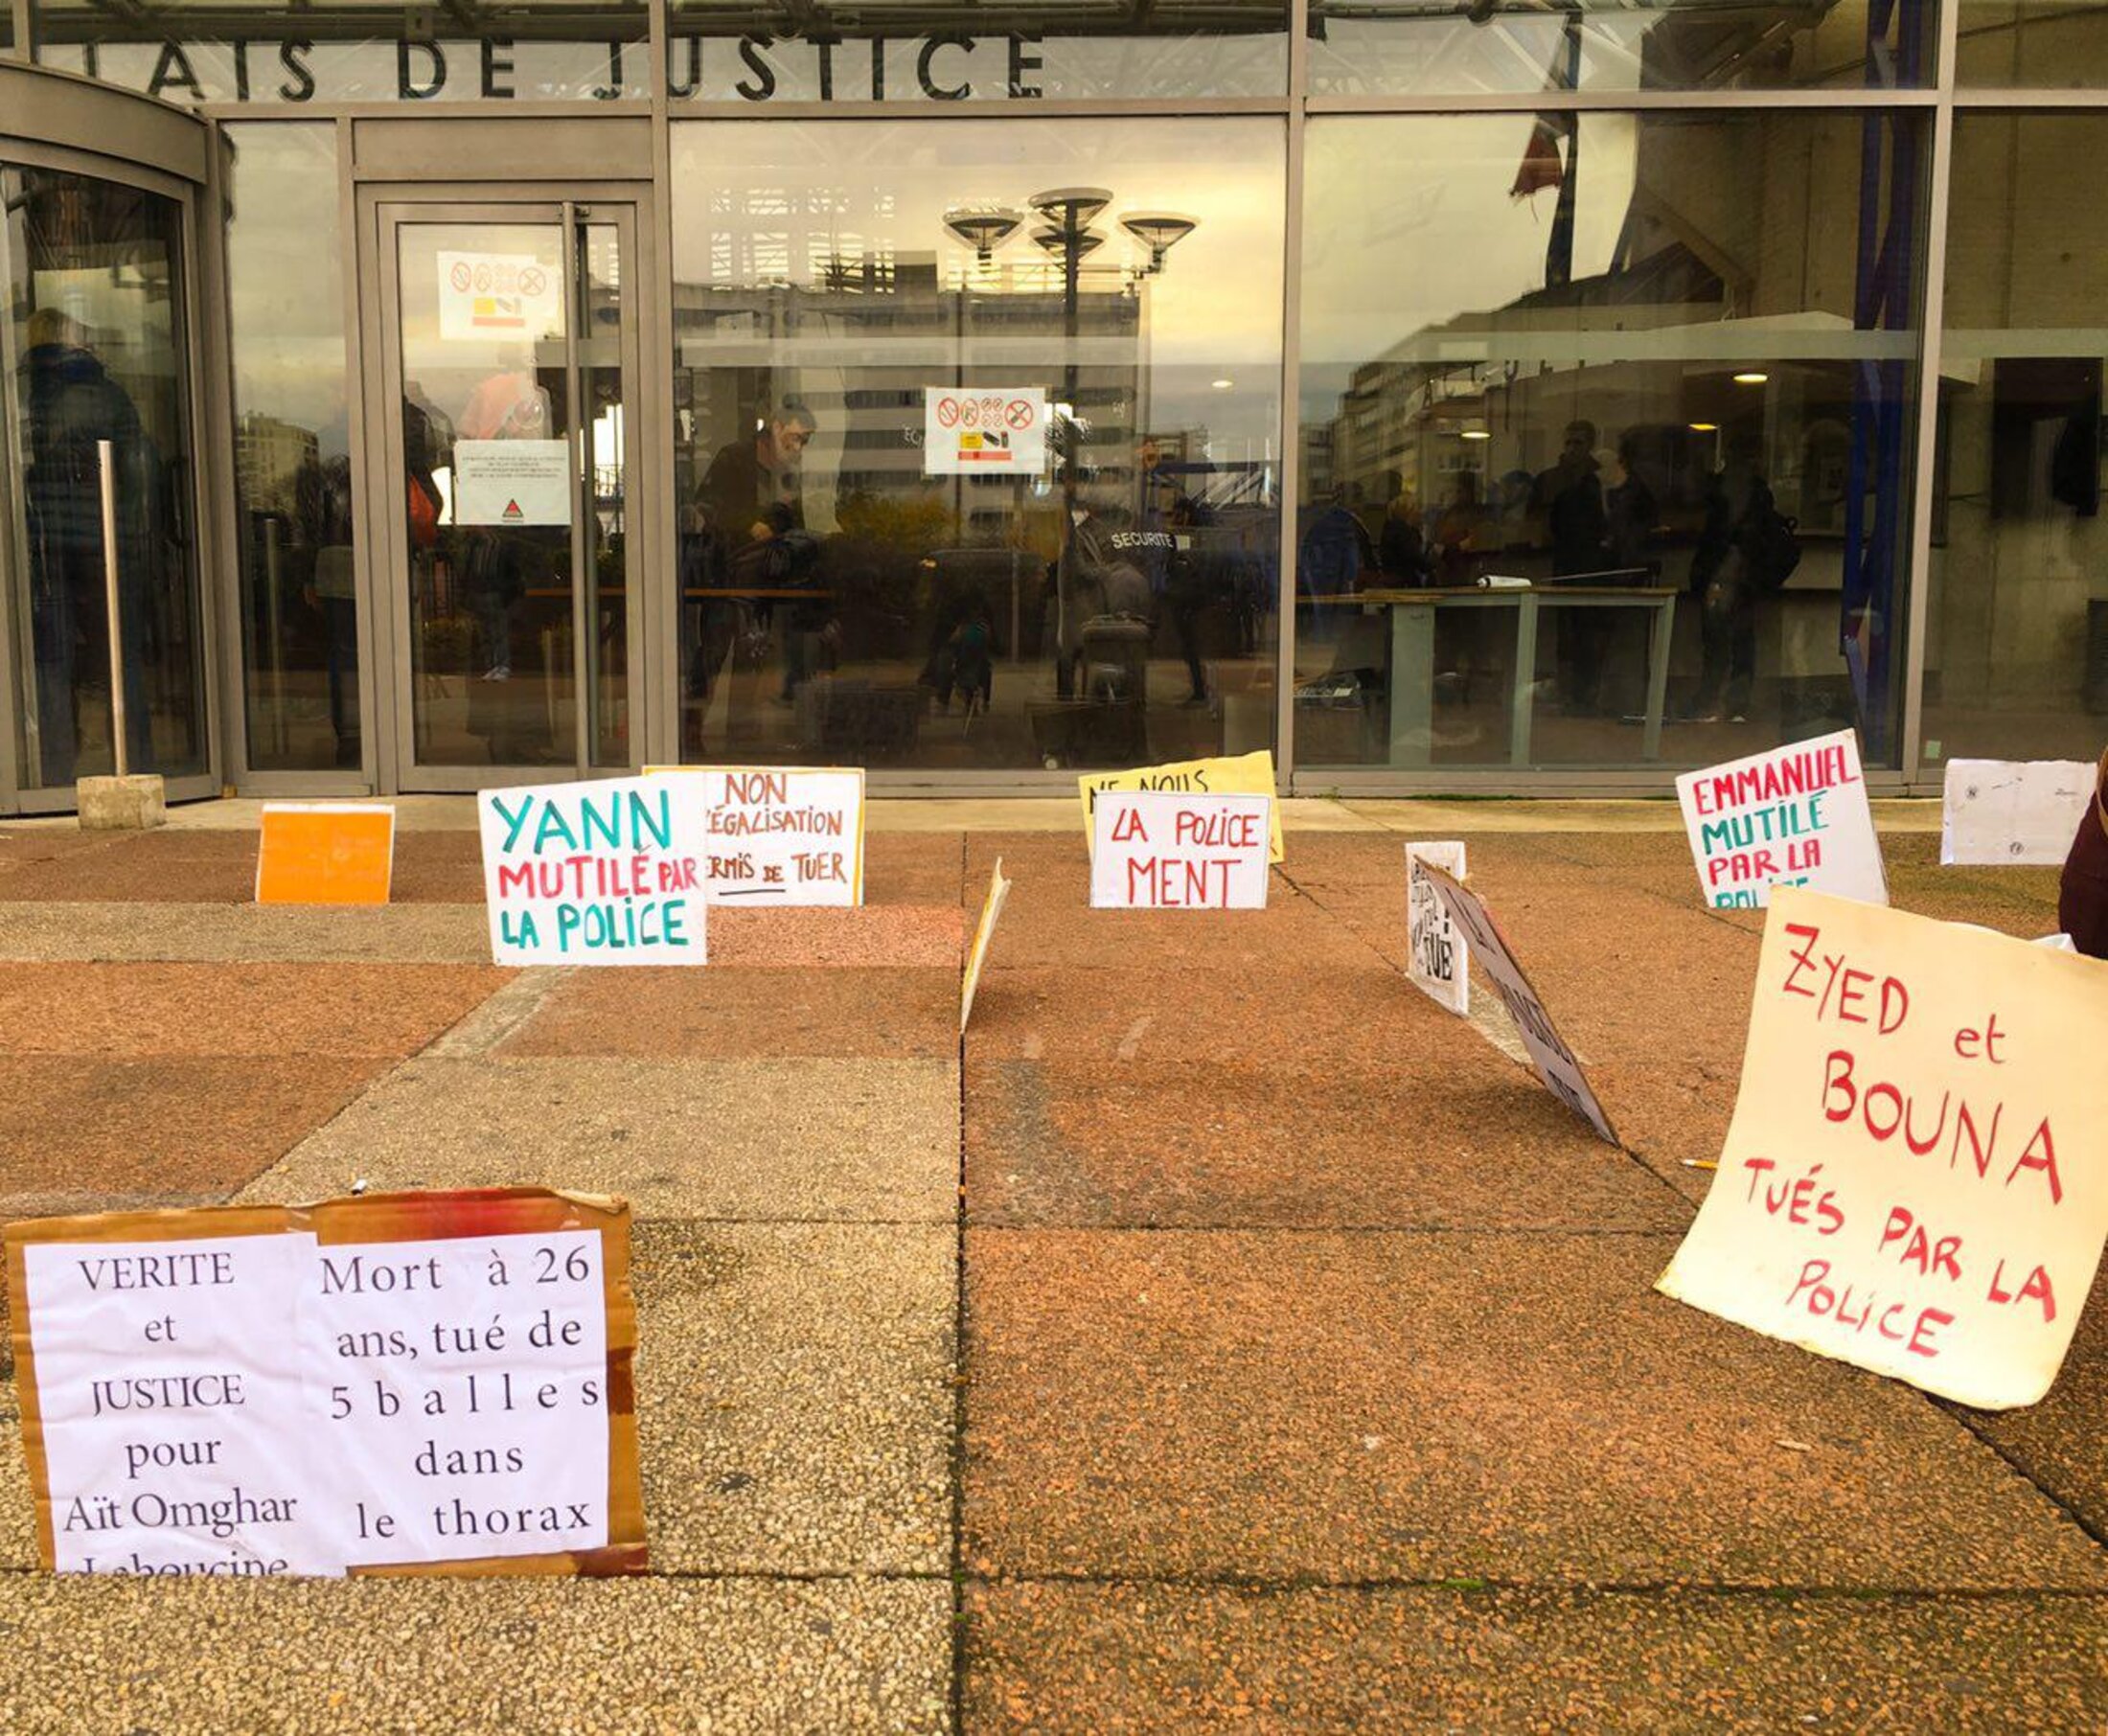 LAIS DE JUSTICE
SECURITE
YANN
MUTILÉ PAR
LA POLICE
NON
ÉGALISATION
ERMIS DE TUER
NE NOUS
LA POLICE
MENT
TUE
EMMANUEL
MUTILÉ
PAR LA
POLICE
ZYED et
BOUNA
TUÉS PAR LA
POLICE
VERITE
et
JUSTICE
pour
Aït Omghar
Lahoucine
Mort à 26
ans, tué de
5 balles
dans
le thorax